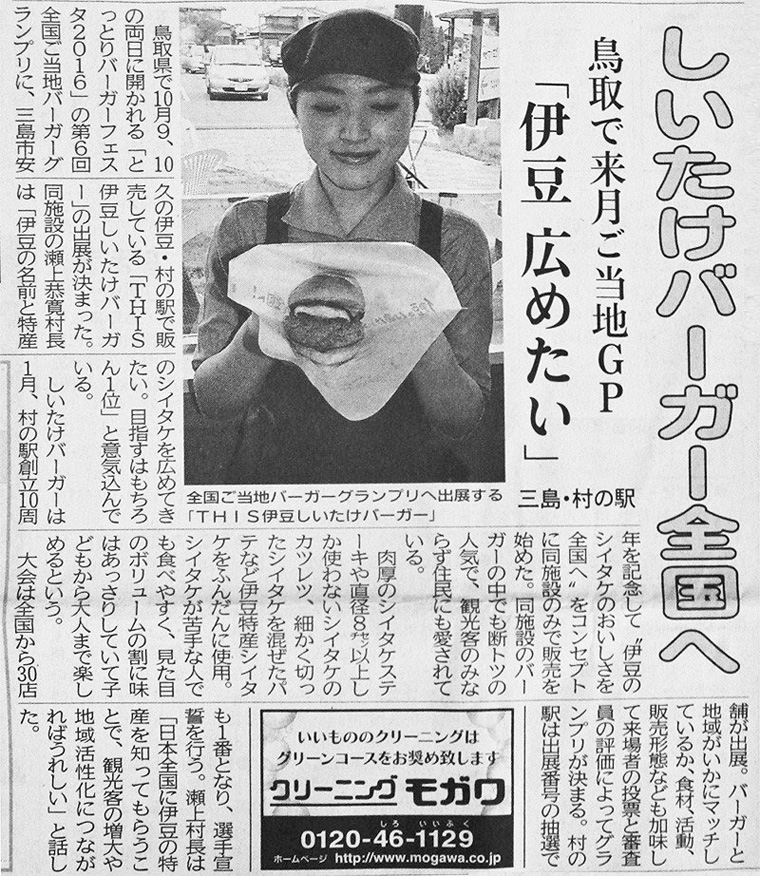 しいたけバーガー全国へ
鳥取で来月ご当地GP
「伊豆 広めたい」
三島・村の駅
鳥取県で10月9、10
の両日に開かれる「と
っとりバーガーフェス
タ2016」の第6回
全国ご当地バーガーグ
ランプリに、三島市安
久の伊豆・村の駅で販
売している「THIS
伊豆しいたけバーガ
ー」の出展が決まった。
同施設の瀬上恭寛村長
は「伊豆の名前と特産
のシイタケを広めてき
たい。目指すはもちろ
ん1位」と意気込んで
いる。
しいたけバーガーは
1月、村の駅創立10周
年を記念して〝伊豆の
シイタケのおいしさを
全国へ〟をコンセプト
に同施設のみで販売を
始めた。同施設のバー
ガーの中でも断トツの
人気で、観光客のみな
らず住民にも愛されて
いる。
肉厚のシイタケステ
ーキや直径8㌢以上し
か使わないシイタケの
カツレツ、細かく切っ
たシイタケを混ぜたパ
テなど伊豆特産シイタ
ケをふんだんに使用。
シイタケが苦手な人で
も食べやすく、見た目
のボリュームの割に味
はあっさりしていて子
どもから大人まで楽し
めるという。
大会は全国から30店
舗が出展。バーガーと
地域がいかにマッチし
ているか、食材、活動、
販売形態なども加味し
て来場者の投票と審査
員の評価によってグラ
ンプリが決まる。村の
駅は出展番号の抽選で
も1番となり、選手宣
誓を行う。瀬上村長は
「日本全国に伊豆の特
産を知ってもらうこ
とで、観光客の増大や
地域活性化につなが
ればうれしい」と話し
た。
全国ご当地バーガーグランプリへ出展する
「THIS伊豆しいたけバーガー」
いいもののクリーニングは
グリーンコースをお奨め致します
クリーニング モガワ
しろ いいふく
0120-46-1129
ホームページ http://www.mogawa.co.jp